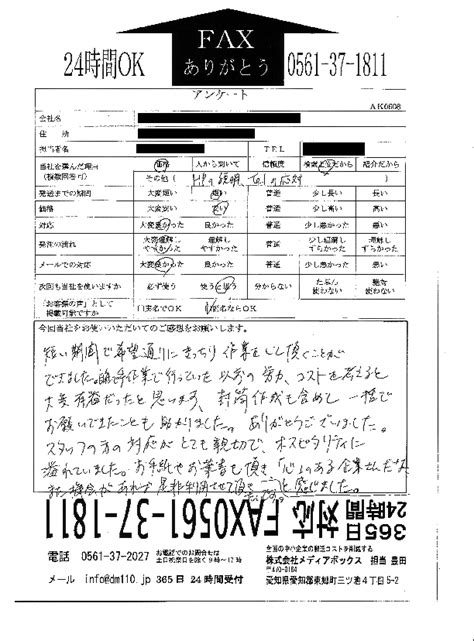 24時間OK
FAX
ありがとう
0561-37-1811
アンケート
AK0608
会社名
住所
担当者名
TEL
当社を選んだ理由
(複数回答可)
価格
人から聞いて
信頼度
検索上位だから
紹介だから
その他(HPの説明、Telの応対)
発送までの期間
大変短い
短い
普通
少し長い
長い
価格
大変安い
安い
普通
少し高い
高い
対応
大変良かった
良かった
普通
少し悪かった
悪い
発注の流れ
大変理解し
やすかった
理解し
やすかった
普通
少し理解し
ずらかった
理解し
ずらかった
メールでの対応
大変良かった
良かった
普通
少し悪かった
悪い
次回も当社を使いますか
必ず使う
使うと思う
分からない
たぶん
使わない
絶対
使わない
「お客様の声」として
掲載可能ですか
実名でOK
匿名ならOK
今回当社をお使いいただいてのご感想をお願いします。
短い期間で希望通りにきっちり作業をして頂くことが
できました。随時手作業で行っていた以前の労力、コストを考えると
大変有益だったと思います。封筒作成も含めて一括で
お願いできたことも助かりました。ありがとうございました。
スタッフの方の対応がとても親切で、ホスピタリティに
溢れていました。お手紙やお葉書も頂き「心」のある企業さんだなあ
また機会があれば是非利用させて頂き
と感じました。
365日
24時間
対応
FAX0561-37-1811
電話 0561-37-2027
お電話でのお問合せは
土日祝祭日を除く9時~17時
メール info@dm110.jp 365日 24時間受付
全国の中小企業の郵送コストを削減する
株式会社メディアボックス 担当 豊田
〒470-0164
愛知県愛知郡東郷町三ツ池4丁目5-2